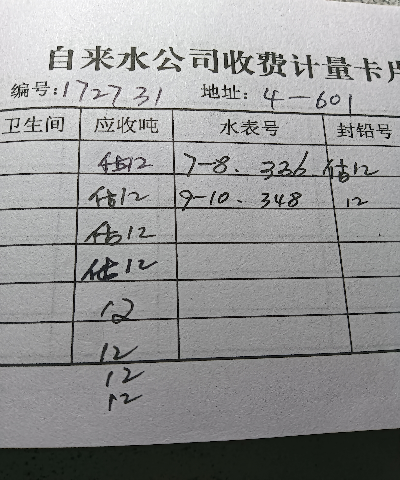 自来水公司收费计量卡片
编号:172731 地址: 4-601
卫生间 应收吨 水表号 封铅号
估12 7-8. 336 估12
估12 9-10. 348 12
估12
估12
12
12
12
12